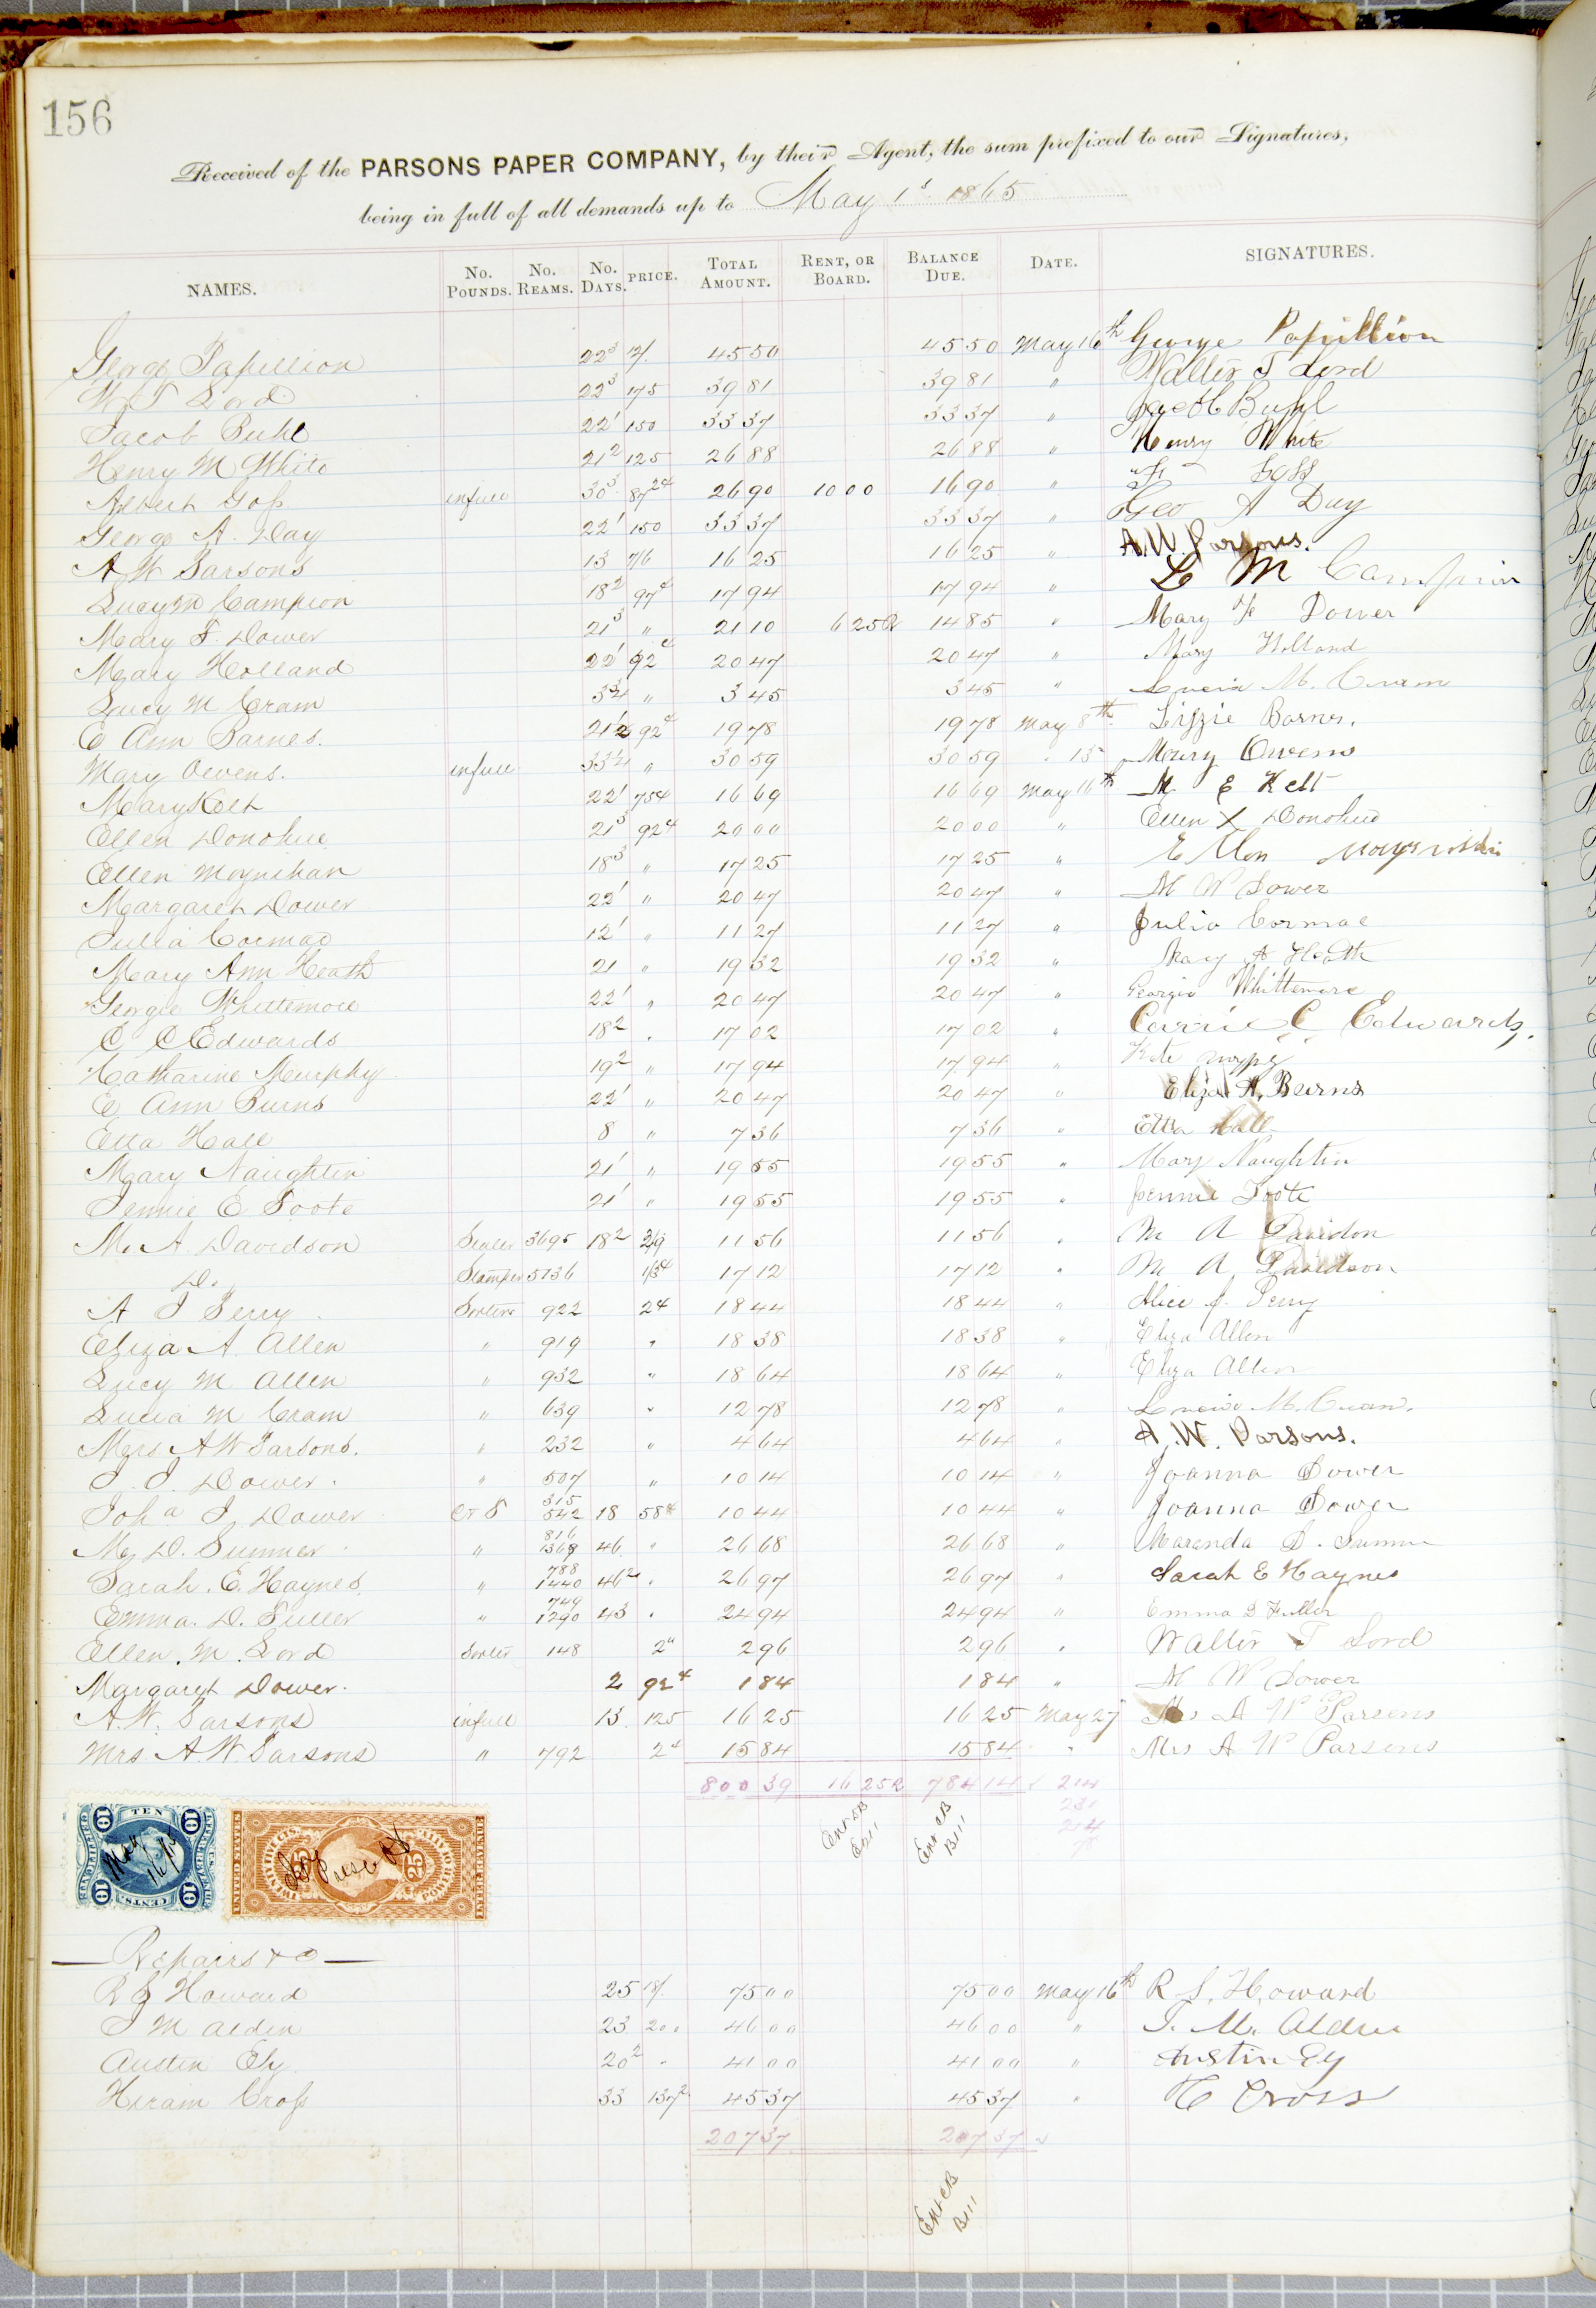 156
Received of the PARSONS PAPER COMPANY, by their Agent, the sum prefixed to our Signatures,
being in full of all demands up to May 1st 1865
NAMES. No. POUNDS. No. REAMS. No. DAYS. PRICE. TOTAL AMOUNT. RENT, OR BOARD. BALANCE DUE. DATE. SIGNATURES.
George Papillion 22 3 12/. 45 50 45 50 May 16th George Papillion
W T Lord 22 3 175 39 81 39 81 " Walter T Lord
Jacob Buhl 22 1 150 33 37 33 37 " Jacob Buhl
Henry M White 21 2 125 26 88 26 88 " Henry White
Albert Gofs infull 30 3 87 24 26 90 10 00 16 90 "
George A. Day 22 1 150 33 37 33 37 " Geo A Day
A W Parsons 13 7/6 16 25 16 25 " A.W. Parsons.
Lucy M Campion 18 2 97 4 17 94 17 94 " L M Campion
Mary F. Dower 21 3 " 21 10 6 25 R 14 85 " Mary F Dower
Mary Holland 22 1 92 4 20 47 20 47 " Mary Holland
Lucy M Cram 3 3/4 " 3 45 3 45 " Lucia M. Cram
E Ann Barnes. 21 1/2 92 4 19 78 19 78 May 8th Lizzie Barnes.
Mary Owens. infull 33 1/4 " 30 59 30 59 " 15 Mary Owens
Mary Kelt 22 1 75 4 16 69 16 69 May 16th M E Kelt
Ellen Donohue 21 3 92 4 20 00 20 00 " Ellen X Donohue
Ellen Moynihan 18 3 " 17 25 17 25 " Ellen
Margaret Dower 22 1 " 20 47 20 47 " M W Dower
Julia Cormac 12 1 " 11 27 11 27 " Julia Cormac
Mary Ann Heath 21 " 19 32 19 32 " Mary A Heath
Georgie Whittemore 22 1 " 20 47 20 47 " Georgia Whittemore
C C Edwards 18 2 " 17 02 17 02 " Carrie C. Edwards,
Catharine Murphy 19 2 " 17 94 17 94 " Kate
E Ann Burns 22 1 " 20 47 20 47 " Eliza A. Burns
Etta Hall 8 " 7 36 7 36 " Etta Hall
Mary Naughtin 21 1 " 19 55 19 55 " Mary Naughtin
Jennie E Foote 21 1 " 19 55 19 55 " Jennie Foote
M. A. Davidson Sealer 3695 18 2 3/9 11 56 11 56 " M A Davidson
Do. Stamper 5136 1/3 4 17 12 17 12 " M A Davidson
A J Perry Sorters 922 2 4 18 44 18 44 " Alice J. Perry
Eliza A Allen " 919 " 18 38 18 38 " Eliza Allen
Lucy M Allen " 932 " 18 64 18 64 " Eliza Allen
Lucia M Cram " 639 " 12 78 12 78 " Lucia M. Cram.
Mrs A W Parsons. " 232 " 4 64 4 64 " A.W. Parsons.
J. J. Dower. " 507 " 10 14 10 14 " Joanna Dower
Joha J. Dower C & S 315 542 18 58 4 10 44 10 44 " Joanna Dower
M. D. Sumner " 816 1368 46 " 26 68 26 68 " Maranda D. Sumner
Sarah. E. Haynes " 788 1440 46 2 " 26 97 26 97 " Sarah E Haynes
Emma. D. Fuller " 749 1290 43 " 24 94 24 94 " Emma D Fuller
Ellen. M. Lord Sorter 148 2 " 2 96 2 96 " Walter T Lord
Margaret Dower. 2 92 4 1 84 1 84 " M W Dower
A. W. Parsons infull 13 125 16 25 16 25 May 27 Mrs A W Parsons
Mrs. A. W. Parsons " 792 2 4 15 84 15 84 " Mrs A W Parsons
800 39 16 25 R 784 14
Ent CB B111
TEN 10 10 CENTS. 10 10 May 16/65
UNITED STATES 25 25 INTER. REVENUE
Repairs & c
R S Howard 25 18/. 75 00 75 00 May 16th R. S. Howard
T M Alden 23 200 46 00 46 00 " T. M. Alden
Austin Ely 20 2 " 41 00 41 00 " Austin Ely
Hiram Crofs 33 137 2 45 37 45 37 " H Cross
207 37 207 37
Ent CB B111